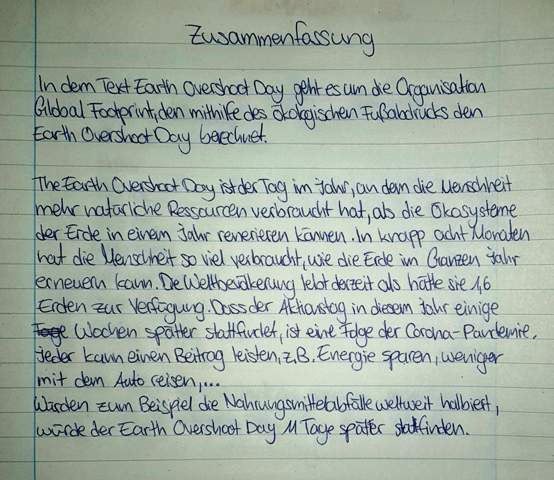 Zusammenfassung
In dem Text Earth Overshoot Day geht es um die Organisation
Gilobal Footprint, den mithilfe des ökologischen Fußabdrucks den
Earth Overshoot Day berechnet.
The Earth Overshoot Day ist der Tag im Jahr, an dem die Menschheit
mehr natürliche Ressourcen verbraucht hat, als die Ökosysteme
der Erde in einem Jahr renerieren können. In knapp acht Monaten
hat die Menschheit so viel verbraucht, wie die Erde im Ganzen Jahr
erneuern kann. De Weltbevölkerung lebt derzeit als hätte sie 1,6
Erden zur Verfügung. Dass der Aktionstag in diesem Jahr einige
Tage Wochen später stattfindet, ist eine Folge der Corona-Pandemie.
Jeder kann einen Beitrag leisten, z.B. Energie sparen, weniger
mit dem Auto reisen,...
Würden zum Beispiel die Nahrungsmittelabfälle weltweit halbiert,
würde der Earth Overshoot Day 11 Tage später stattfinden.